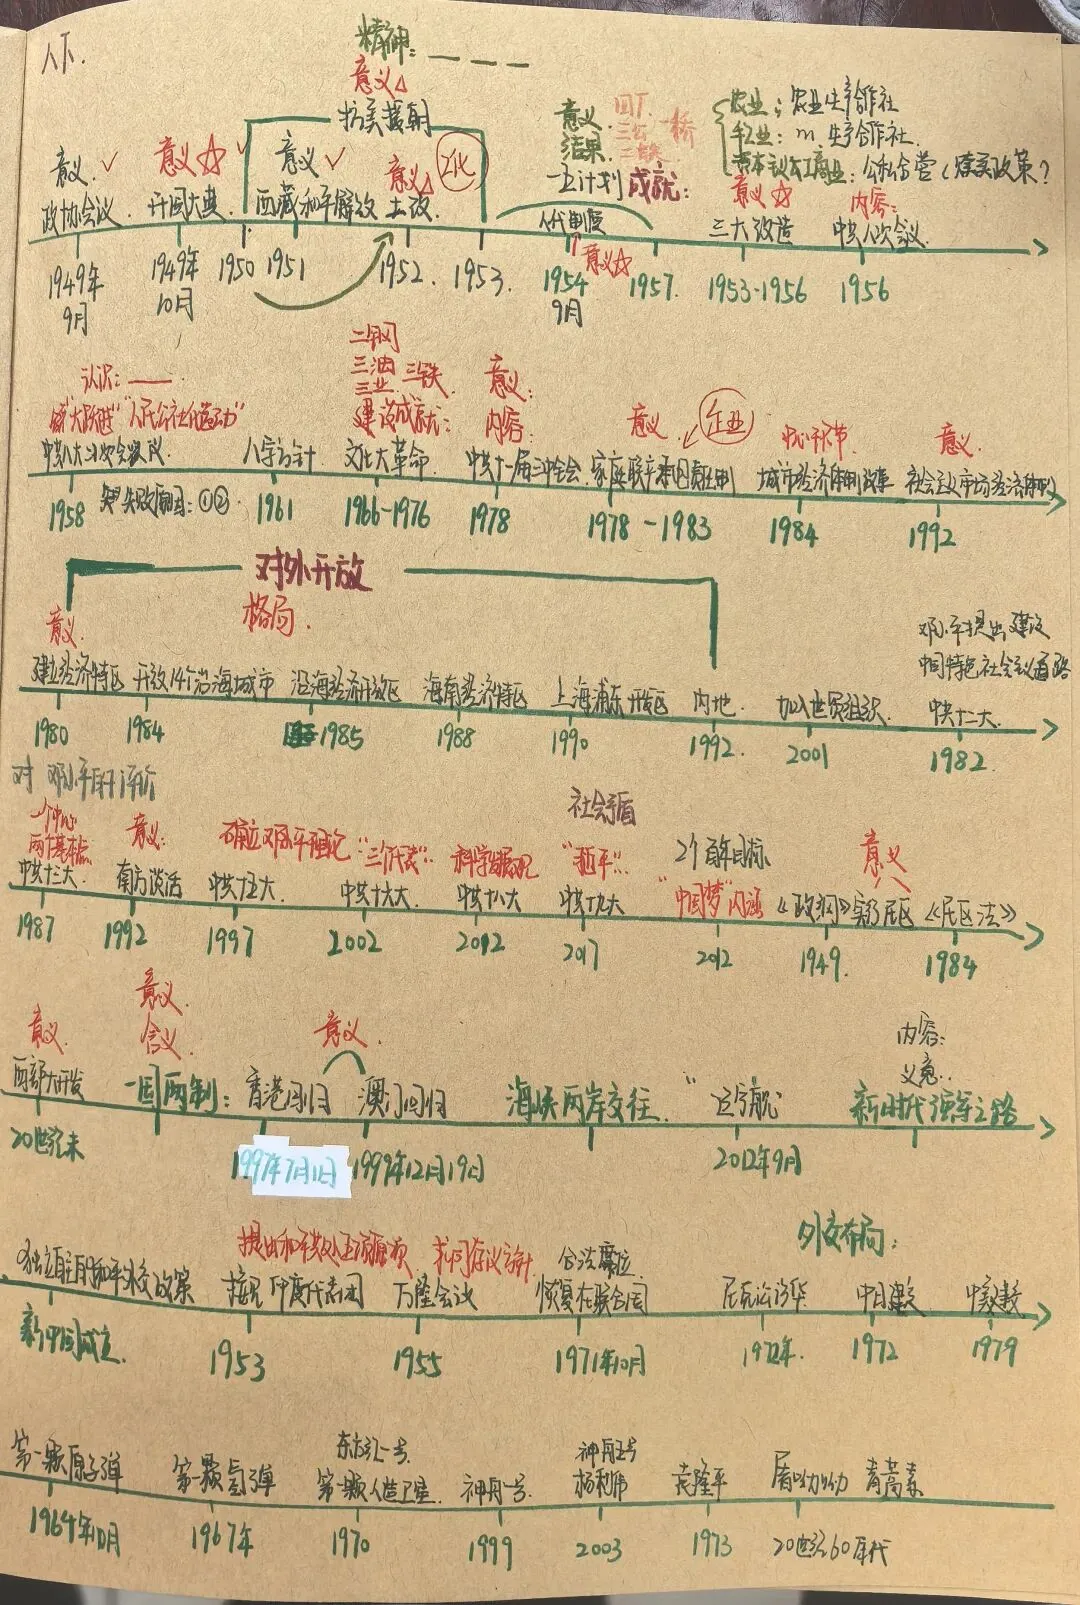 八下.
精神：_ _ _
意义△
抗美援朝
意义✓
意义☆✓
意义✓
意义△
工化
意义
结果
四厂
三公
二铁
一桥
一五计划成就：
农业：农业生产合作社
手工业：〃生产合作社.
资本主义工商业：公私合营（赎买政策？
政协会议.
开国大典.
西藏和平解放
土改.
人代制度
意义☆
意义☆
三大改造
内容：
中共八次会议.
1949年9月
1949年10月
1950
1951
1952.
1953.
1954 9月
1957.
1953-1956
1956
认识：——
"大跃进""人民公社化运动"
二钢
三油
三业 三铁.
建设成就：
意义：
内容：
意义
企业
中心环节
意义
中共八大二次会议
失败原因：①②
八字方针
文化大革命
中共十一届三中全会
家庭联产承包责任制
城市经济体制改革
社会主义市场经济体制
1958
1961
1966-1976
1978
1978-1983
1984
1992
对外开放
意义.
格局.
邓小平提出建设
中国特色社会主义道路
建立经济特区
开放14个沿海城市
沿海经济开放区
海南经济特区
上海浦东开发区
内地.
加入世贸组织.
中共十二大.
1980
1984
1985
1988
1990
1992.
2001
1982.
对邓小平的评价
一个中心
两个基本点
意义：
确立邓小平理论
"三个代表"..
科学发展观
社会矛盾
"习近平"..
2个百年目标
"中国梦"内涵
意义
中共十三大.
南方谈话
中共十五大
中共十六大
中共十八大
中共十九大
《政纲》实行民区
《民区法》
1987
1992
1997
2002
2012
2017
2012
1949.
1984
意义.
意义.
含义.
意义
内容：
意义..
西部大开发
一国两制：
香港回归
澳门回归
海峡两岸交往.
"辽宁舰"
新时代强军之路
20世纪末
1997年7月1日
1999年12月19日
2012年9月
提出和平共处五项原则
求同存异方针
合法席位
外交布局：
独立自主的和平外交政策
接见印度代表团
万隆会议
恢复在联合国
尼克松访华
中日建交
中美建交
新中国成立.
1953
1955
1971年10月
1972年.
1972
1979
第一颗原子弹
第一颗氢弹
东方红一号.
第一颗人造卫星.
神舟一号.
神舟五号
杨利伟
袁隆平
屠呦呦 青蒿素
1964年10月
1967年
1970
1999
2003
1973
20世纪60年代